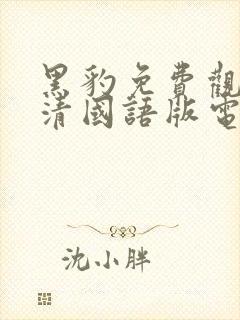 黑豹免費觀
清國語版電
沈小胖